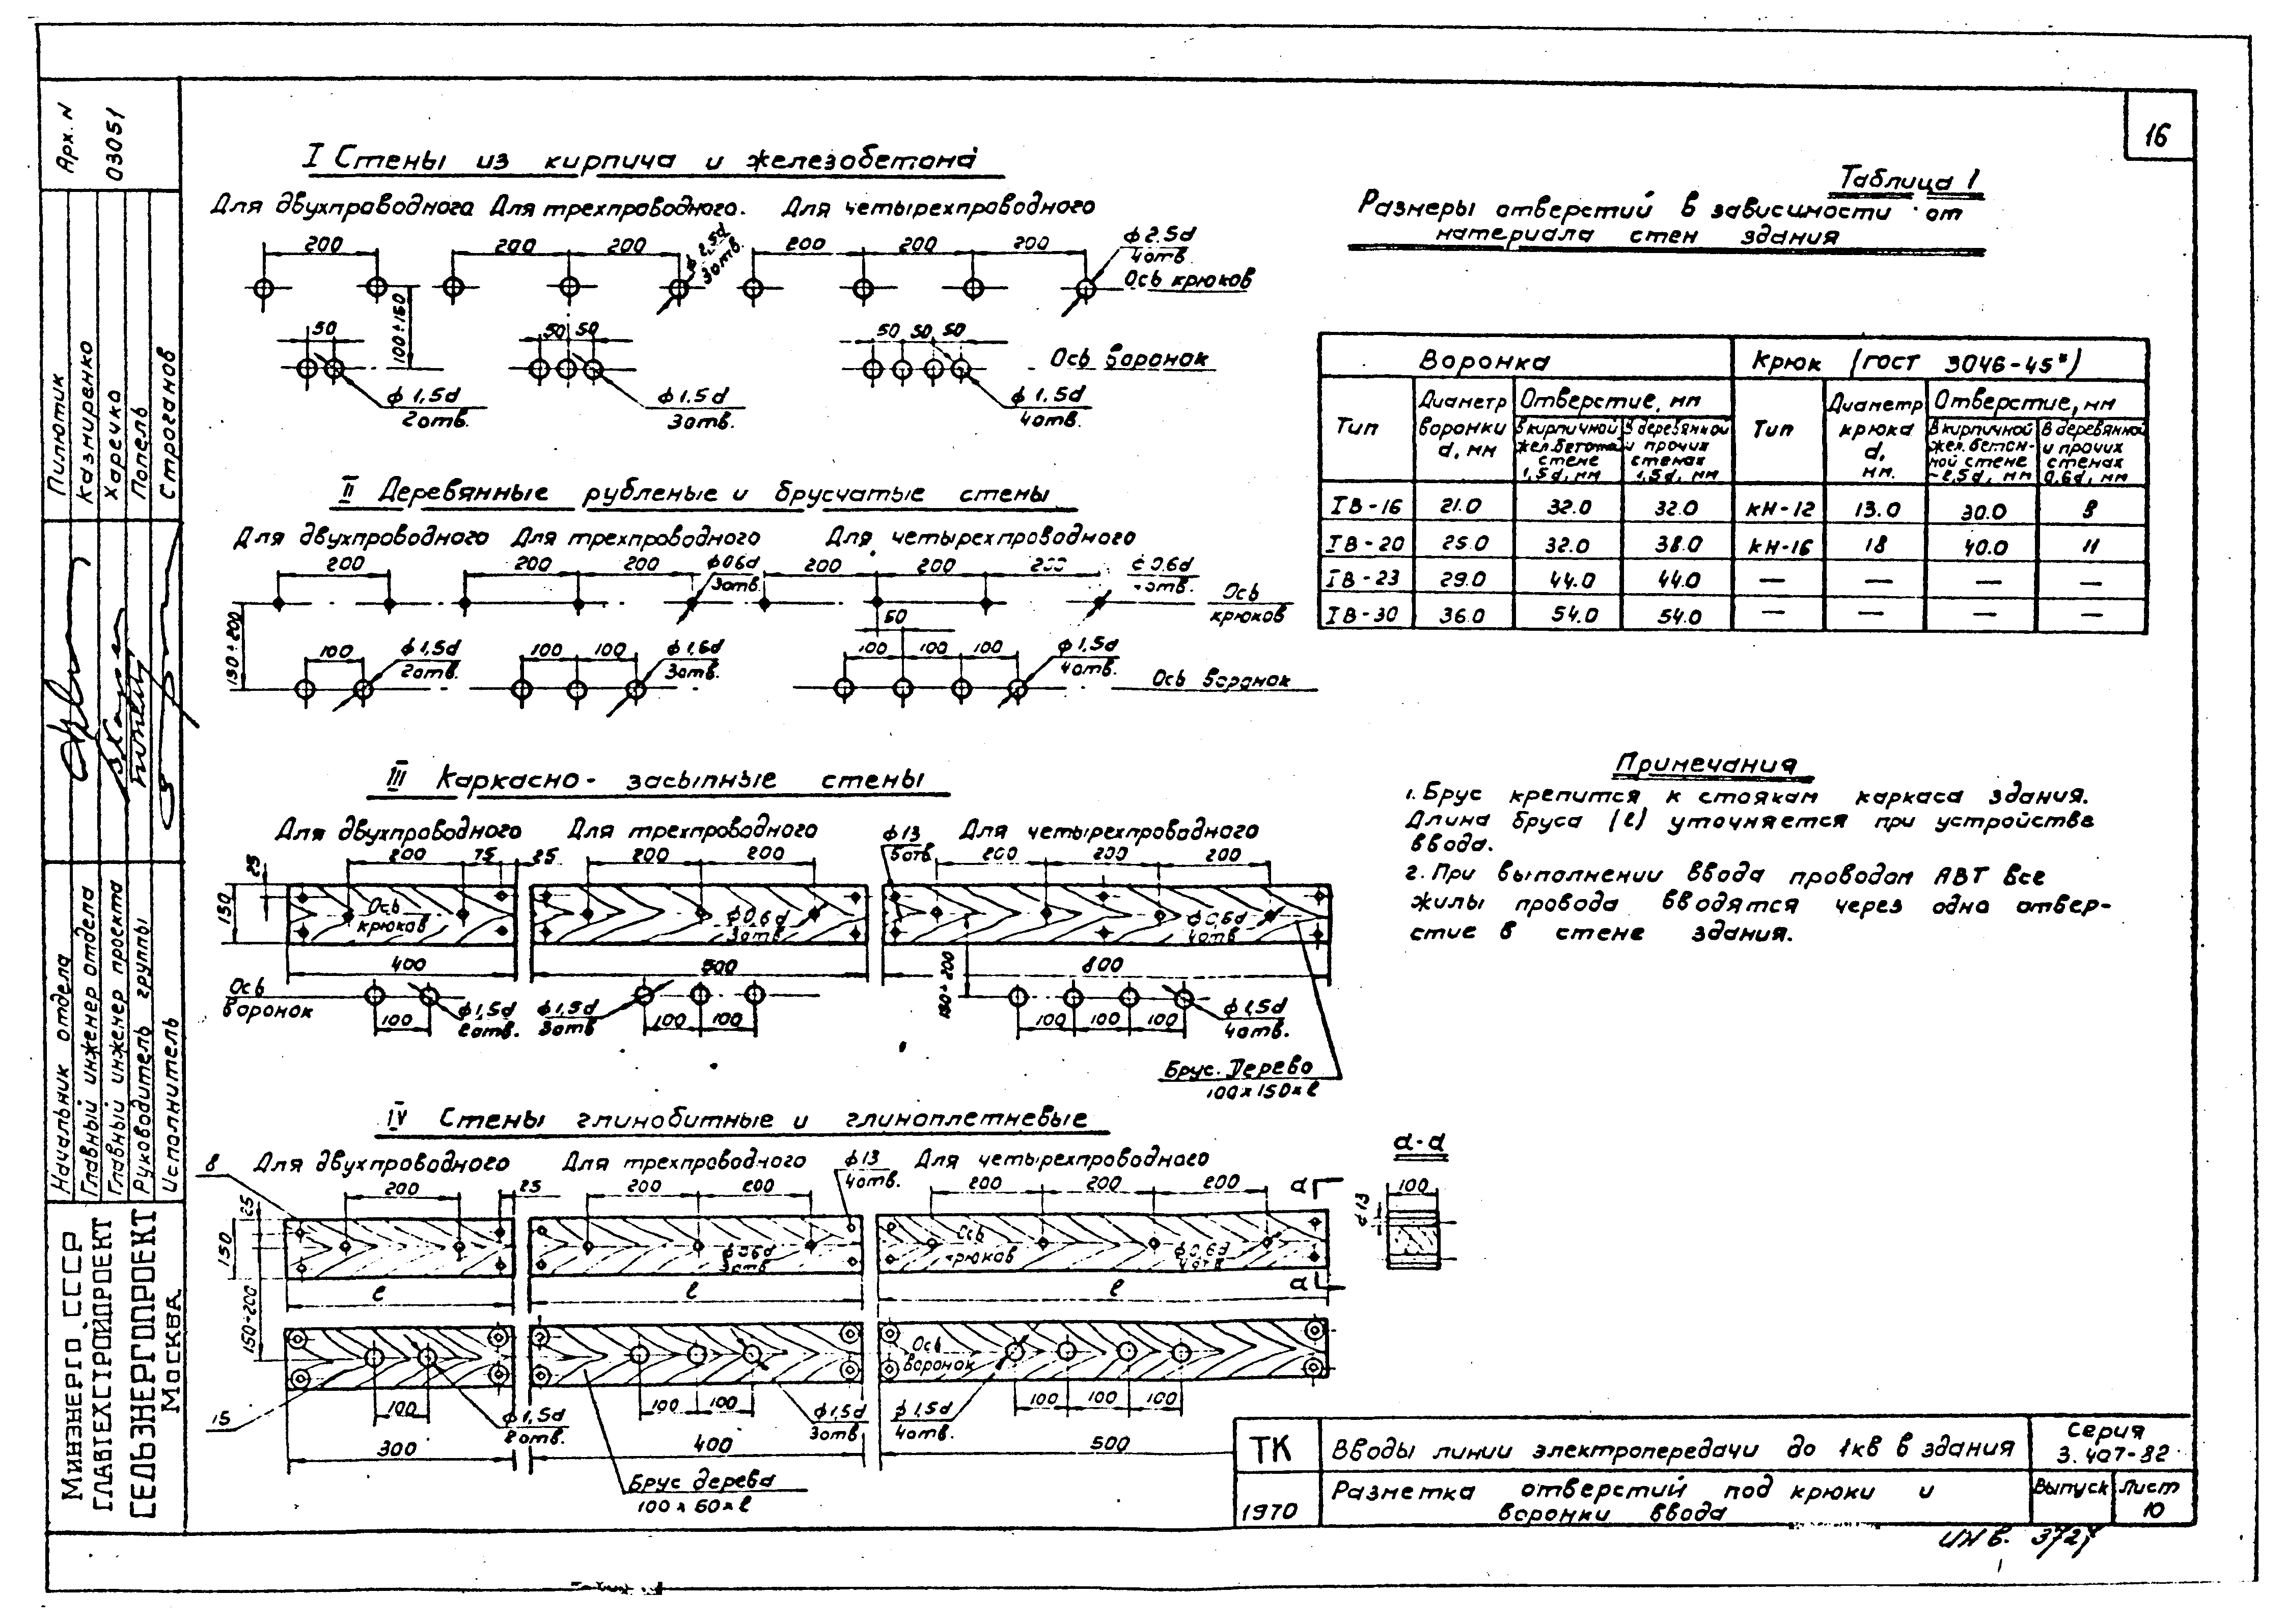 16
I Стены из кирпича и железобетона
Для двухпроводного Для трехпроводного. Для четырехпроводного
200 200 200 200 200 200
ф 2,5d
3отв.
ф 2.5d
4отв.
Ось крюков
100÷150
50 50 50 50 50 50
Ось воронок
ф 1,5d
2отв.
ф 1.5d
3отв.
ф 1.5d
4отв.
II Деревянные рубленые и брусчатые стены
Для двухпроводного Для трехпроводного Для четырехпроводного
200 200 200 200 200 200
ф 0.6d
3отв.
0.6d
отв.
Ось
крюков
50
100 100 100 100 100 100
ф 1,5d
2отв.
3отв.
ф 1,5d
4отв.
Ось воронок
III Каркасно- засыпные стены
Для двухпроводного Для трехпроводного Для четырехпроводного
ф 13
5отв
200 75 25 200 200 200 200 200
25
150
Ось
крюков
ф 0.6d
3отв
ф 0,6d
4отв
400 500 800
Ось
воронок
ф 1,5d
2отв.
ф 1,5d
3отв
ф 1,5d
4отв.
100 100 100 100 100 100
Брус. Дерево
100х150х ℓ
IV Стены глинобитные и глиноплетневые
Для двухпроводного Для трехпроводного Для четырехпроводного
8
ф 13
4отв.
200 25 200 200 200 200 200
25
150
150÷200
Ось
крюков
ф 0.6d
3отв
ф 0.6d
ℓ ℓ ℓ
а
а
Ось
воронок
15
100 100 100 100 100 100
ф 1,5d
2отв.
ф 1,5d
3отв.
ф 1,5d
4отв.
300 400 500
Брус дерева
100 х 60 х ℓ
а-а
100
Таблица 1
Размеры отверстий в зависимости от
материала стен здания
Воронка Крюк (ГОСТ 3046-45*)
Тип Диаметр воронки d, мм Отверстие, мм Тип Диаметр крюка d, мм. Отверстие, мм
В кирпичной жел.бетона стене 1,5d, мм В деревянной и прочих стенах 1,5d, мм В кирпичной жел.бетон-ной стене ~2,5d, мм В деревянной и прочих стенах 0,6d, мм
IВ-16 21.0 32.0 32.0 КН-12 13.0 30.0 8
IВ-20 25.0 32.0 38.0 КН-16 18 40.0 11
IВ-23 29.0 44.0 44.0 — — — —
IВ-30 36.0 54.0 54.0 — — — —
Примечания
1. Брус крепится к стоякам каркаса здания.
Длина бруса (ℓ) уточняется при устройстве
ввода.
2. При выполнении ввода проводом АВТ все
жилы провода вводятся через одно отвер-
стие в стене здания.
ТК
1970
Вводы линии электропередачи до 1кв в здания
Разметка отверстий под крюки и
воронки ввода
Серия
3.407-82
Выпуск
Лист
10
инв.
Арх. N
03051
Пилютик
Казмиренко
Харечко
Попель
Строганов
Начальник отдела
Главный инженер отдела
Главный инженер проекта
Руководитель группы
Исполнитель
Минэнерго СССР
ГЛАВТЕХСТРОЙПРОЕКТ
СЕЛЬЭНЕРГОПРОЕКТ
Москва